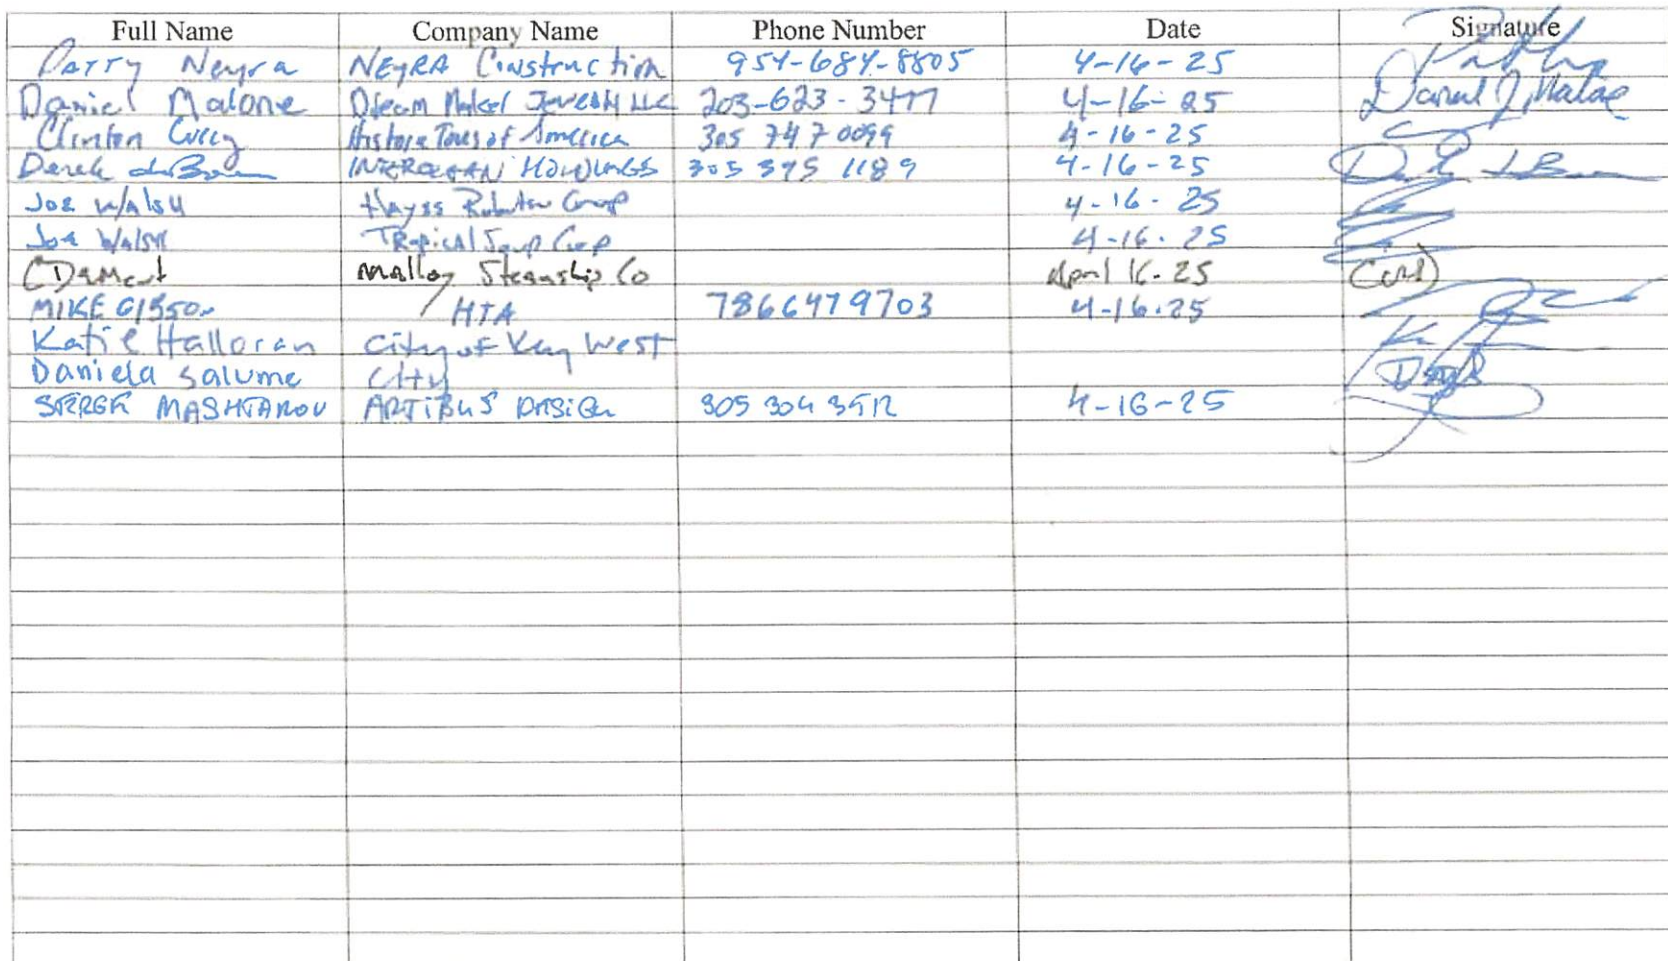 Full Name Company Name Phone Number Date Signature
Patty Neyra NEYRA Construction 954-684-8805 4-16-25
Daniel Malone Dream Maker Jewelry LLC 203-623-3477 4-16-25 Daniel J Malone
Clinton Curry Historic Tours of America 305 747 0099 4-16-25
Derek INTEROCEAN HOLDINGS 305 395 1189 4-16-25
Joe Walsh Hayes Group 4-16-25
Joe Walsh Tropical Soup Corp 4-16-25
Mallory Steamship Co April 16-25
MIKE GIBSON HTA 7866479703 4-16-25
Katie Halloran City of Key West
Daniela Salume City
SERGE MASHTAKOV ARTIBUS DESIGN 305 304 3512 4-16-25